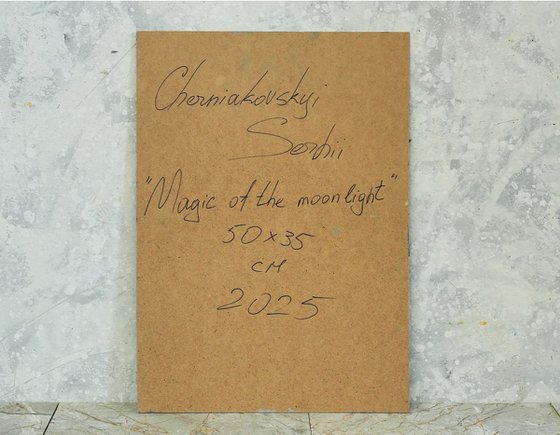 Cherniakovskyi
Serhii
"Magic of the moonlight"
50x35
см
2025